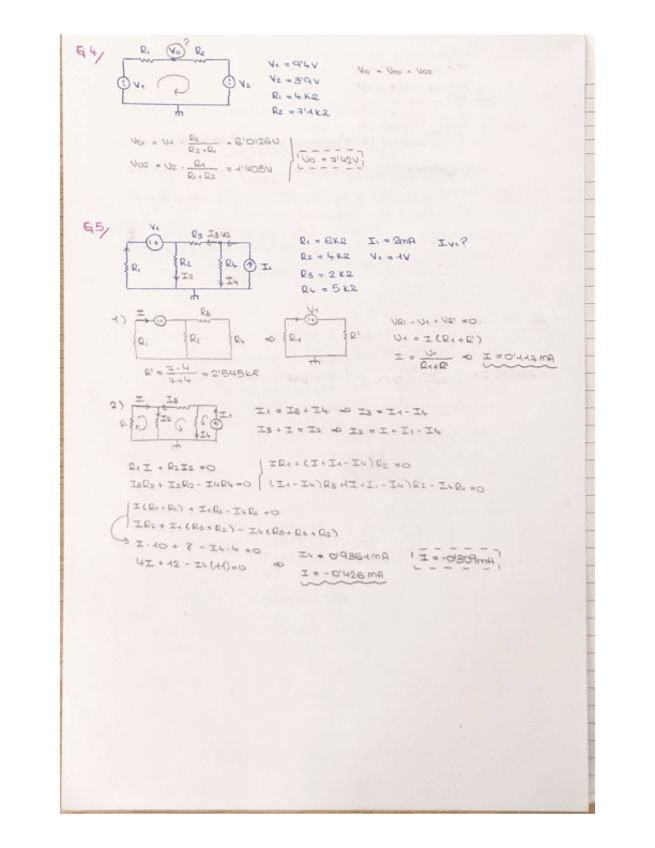 Ej 4/
R1 V0? R2
V1 V2
V1 = 9'4V
V2 = 3'9V
R1 = 4 KΩ
R2 = 7'1KΩ
V0 = V01 + V02
V01 = V1 · R2/(R2+R1) = 6'0126V
V02 = V2 · R1/(R1+R2) = 1'405V
V0 = 7'42V
Ej 5/
V1 R3 I3 V2
R1 R2 R4 I1
I2 I4
R1 = 6KΩ I1 = 2mA Iv1?
R2 = 4KΩ V1 = 1V
R3 = 2 KΩ
R4 = 5 KΩ
1) I R3
R1 R2 R4 ⇒ V1 R1 R'
R' = 7·4/(7+4) = 2'545KΩ
VR1 - V1 + VR' = 0
V1 = I (R1+R')
I = V1/(R1+R') ⇒ I = 0'117mA
2) I I3
R1 I2 I4 I1
I1 = I3 + I4 ⇒ I3 = I1 - I4
I3 + I = I2 ⇒ I2 = I + I1 - I4
R1I + R2I2 = 0
I3R3 + I2R2 - I4R4 = 0
IR1 + (I + I1 - I4) R2 = 0
(I1 - I4) R3 + (I + I1 - I4) R2 - I4R4 = 0
I(R1+R2) + I1R2 - I4R2 = 0
IR2 + I1 (R3+R2) - I4 (R3+R4+R2)
I·10 + 8 - I4·4 = 0
4I + 12 - I4(11) = 0 ⇒
I4 = 0'936mA
I = -0'426 mA
I = -0'309mA